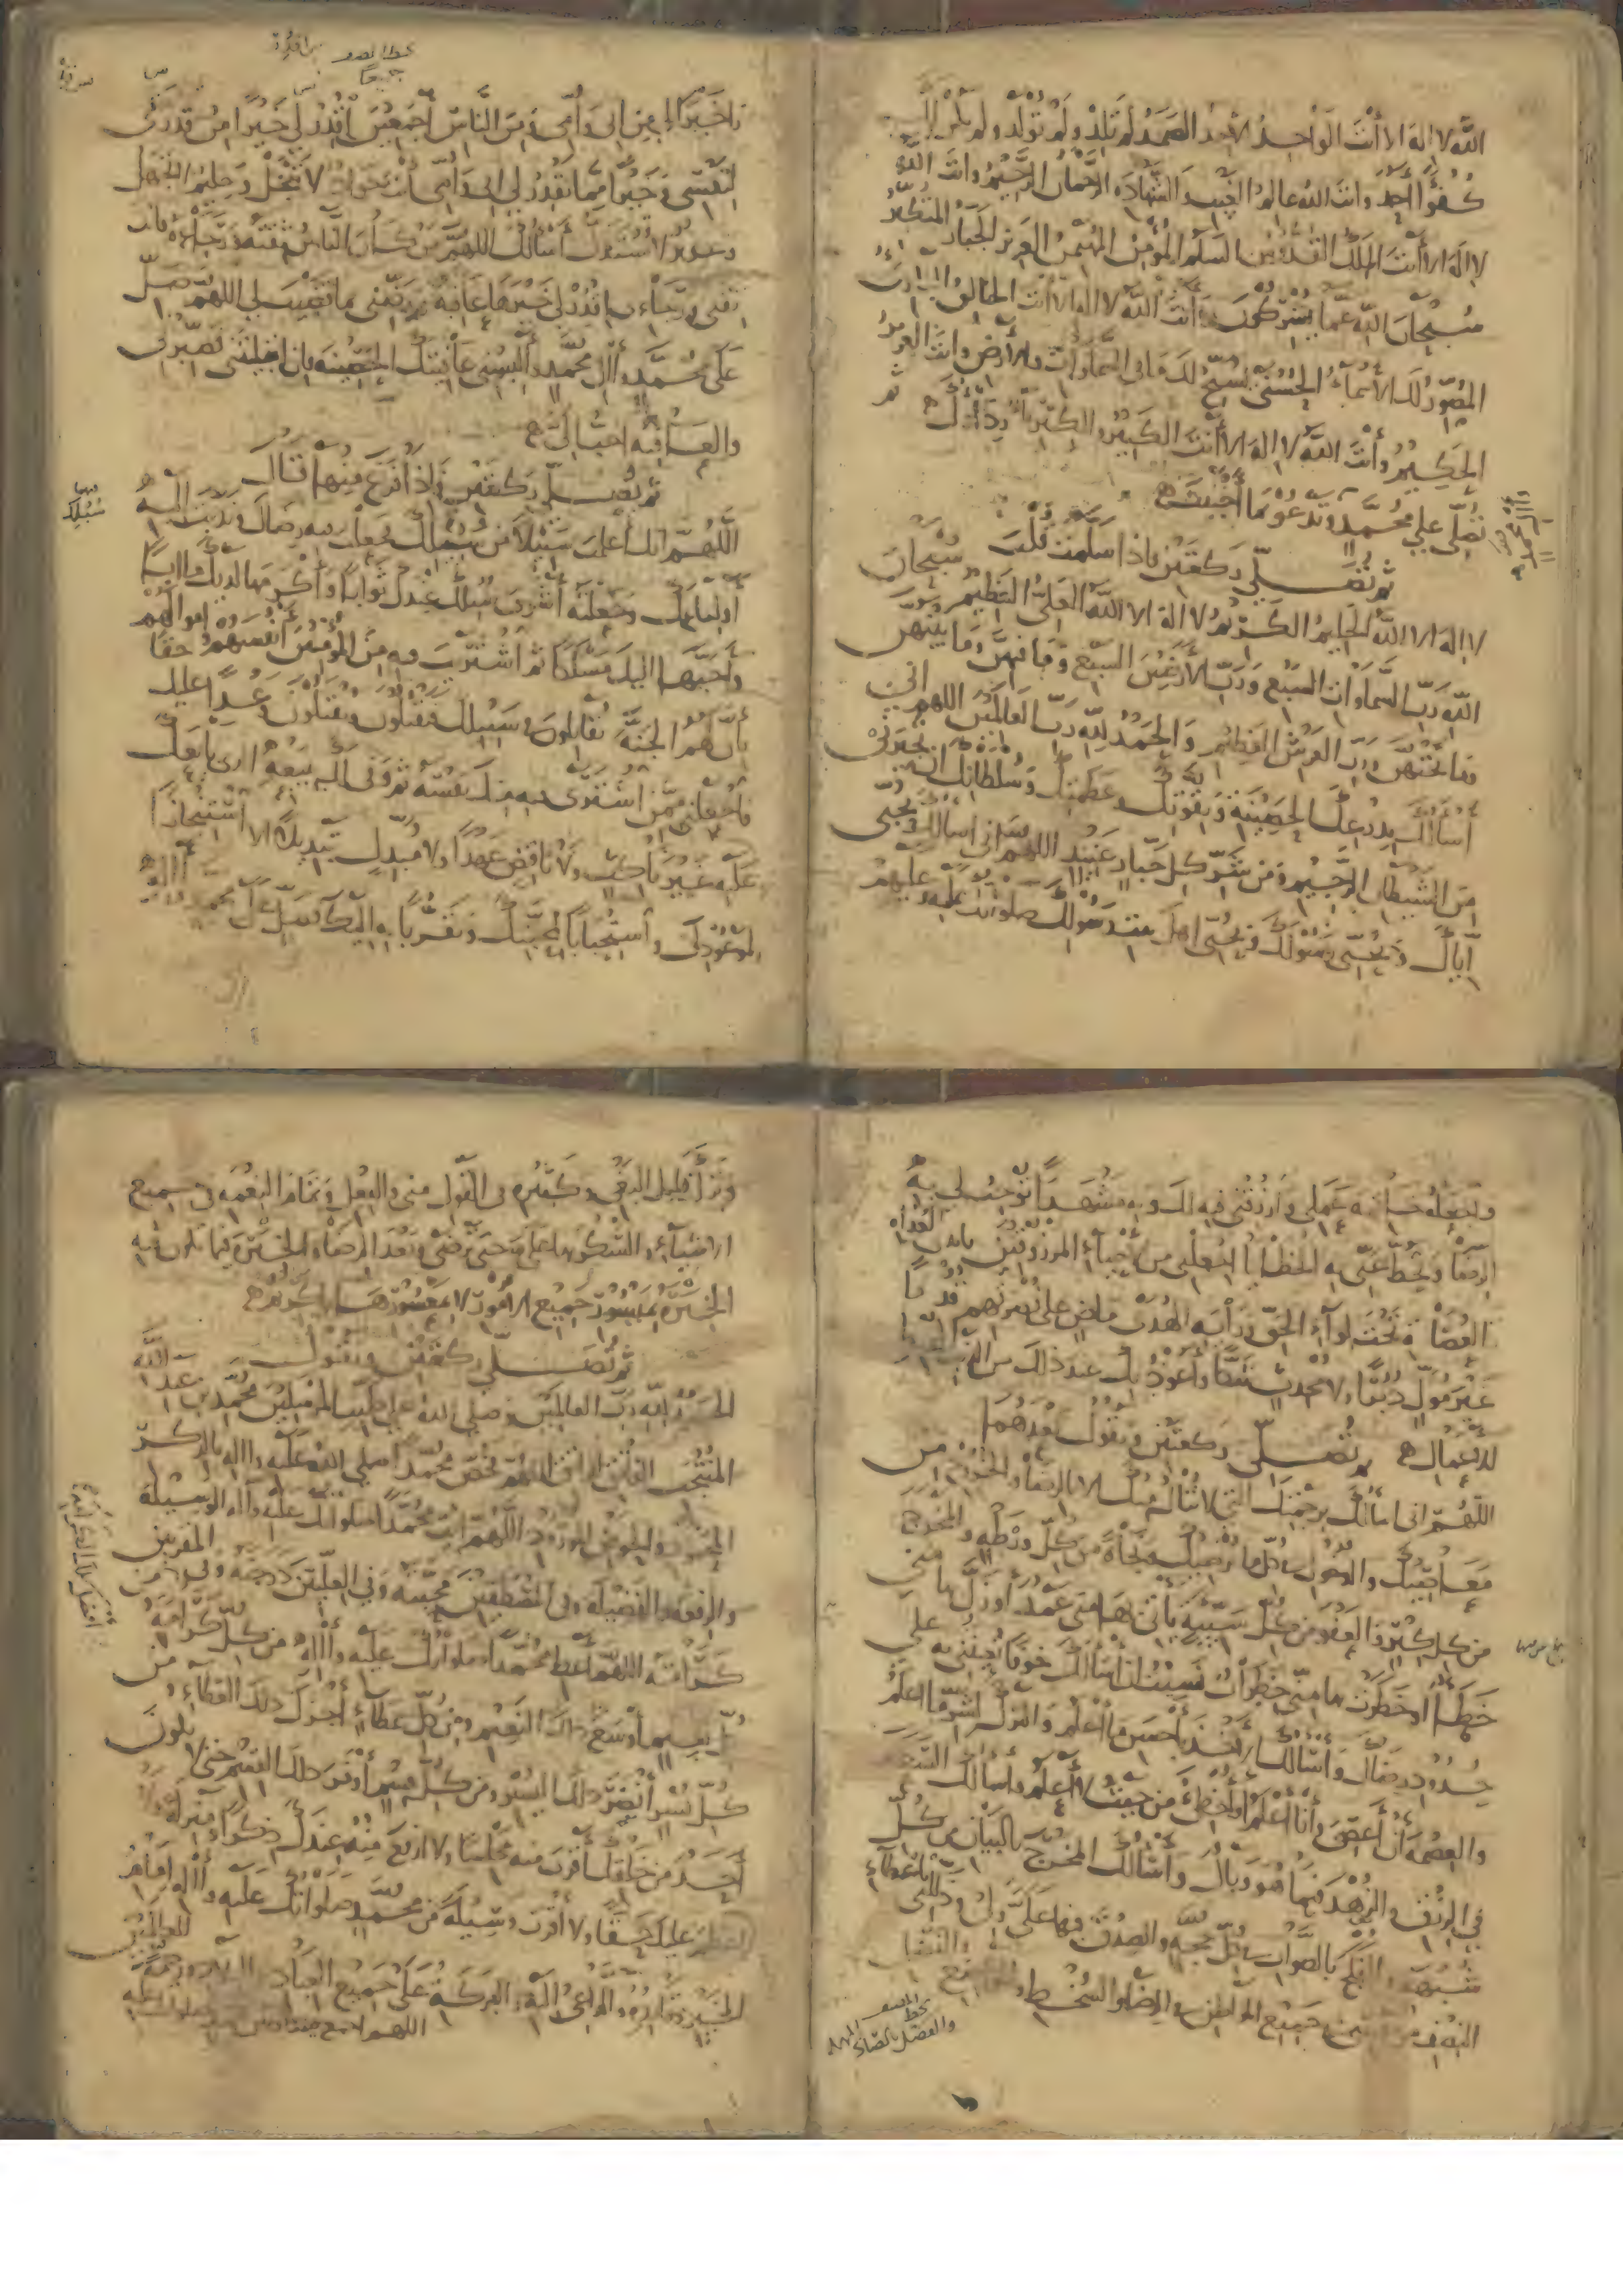 الله لا اله الا أنت الواحد الأحد الصمد لم تلد ولم تولد ولم يكن لك
كفوا أحد وانت الله عالم الغيب والشهادة الرحمان الرحيم وانت الله
لا اله الا أنت الملك القدوس السلم المؤمن المهيمن العزيز الجبار المتكبر
سبحان الله عما يشركون وأنت الله لا اله الا أنت الخالق البارئ
المصور لك الأسماء الحسنى يسبح لك ما في السماوات والأرض وانت العزيز
الحكيم وأنت الله لا اله الا أنت الكبير والكبرياء رداؤك ثم
تصلي على محمد وتدعو بما أحببت
ثم تصلي ركعتين فاذا سلمت قلت
لا اله الا الله الحليم الكريم لا اله الا الله العلي العظيم سبحان
الله رب السماوات السبع ورب الأرضين السبع وما فيهن وما بينهن
وما تحتهن ورب العرش العظيم والحمد لله رب العالمين اللهم اني
أسألك بدرعك الحصينة وبقوتك وعظمتك وسلطانك أن تجيرني
من الشيطان الرجيم ومن شر كل جبار عنيد اللهم اني اسألك بحبي
اياك وبحبي رسولك وبحبي اهل بيت رسولك صلواتك عليه وعليهم
بخط المصنف
جميعا
يا خيرا لي من ابي وأمي ومن الناس أجمعين أقدر لي خيرا من قدري
لنفسي وخيرا مما يقدر لي ابي وامي أنت جواد لا تبخل وحليم لا تجهل
وعزيز لا تستذل أسألك اللهم من كان الناس ثقته ورجاءه فانت
ثقتي ورجائي اقدر لي خيرها عافية ورضني بما قضيت لي اللهم صل
على محمد وآل محمد وألبسني عافيتك الحصينة فان ابتليتني فصبرني
والعافية احب الي
ثم تصلي ركعتين فاذا فرغ منها قال
اللهم انك أعلمت سبيلا من سبلك فجعلت فيه رضاك وندبت اليه
أولياءك وجعلته أشرف سبلك عندك ثوابا وأكرمها لديك مآبا
وأحبها اليك مسلكا ثم اشتريت فيه من المؤمنين أنفسهم وأموالهم
بأن لهم الجنة يقاتلون في سبيلك فيقتلون ويقتلون وعدا عليك حقا
فاجعلني ممن اشترى فيه منك نفسه ثم وفى لك ببيعه الذي بايعك
عليه غير ناكث ولا ناقض عهدا ولا مبدل تبديلا الا استنجازا
لموعودك واستحبابا لمحبتك وتقربا به اليك فصل على محمد وآله
واجعله خاتمة عملي وارزقني فيه لك وبه مشهدا توجب لي به
الرضا وتحط عني به الخطايا اجعلني من الأحياء المرزوقين بايدي العداة
العصاة تحت لواء الحق وراية الهدى ماض على نصرتهم قدما
غير مول دبرا ولا محدث شكا وأعوذ بك عند ذلك من الذنب المحبط
للأعمال ثم تصلي ركعتين وتقول بعدهما
اللهم اني اسألك برحمتك التي لا تنال منك الا بالرضا والخروج من
معاصيك والدخول في كل ما يرضيك ونجاة من كل ورطة والمخرج
من كل كبيرة والعفو من كل سيئة يأتي بها مني عمد أو زل بها مني
خطأ أو خطرت بها مني خطرات نسيت أن أسألك خوفا تعينني به على
حدود رضاك وأسألك الأخذ بأحسن ما أعلم والترك لشر ما أعلم
والعصمة أن أعصي وأنا أعلم أو أخطئ من حيث لا أعلم وأسألك السعة
في الرزق والزهد فيما هو وبال وأسألك المخرج بالبيان من كل
شبهة والفلج بالصواب في كل حجة والصدق فيما علي ولي وذللني باعطاء
النصف من نفسي في جميع المواطن في الرضا والسخط والتواضع والفضل
بخط المصنف
وترك قليل البغي وكثيره في القول مني والفعل وتمام النعمة في جميع
الأشياء والشكر بها علي حتى ترضى وبعد الرضا والخيرة فيما تكون فيه
الخيرة بميسور جميع الأمور لا بمعسورها يا كريم
ثم تصلي ركعتين وتقول
الحمد لله رب العالمين وصلى الله على طيب المرسلين محمد بن عبد الله
المنتجب الفاتق الراتق اللهم فخص محمدا صلى الله عليه وآله بالذكر
المحمود والحوض المورود اللهم آت محمدا صلواتك عليه وآله الوسيلة
والرفعة والفضيلة وفي المصطفين محبته وفي العليين درجته وفي المقربين
كرامته اللهم اعط محمدا صلواتك عليه وآله من كل كرامة
أفضل تلك الكرامة
كل نعيم أوسع ذلك النعيم ومن كل عطاء أجزل ذلك العطاء ومن
كل يسر أنضر ذلك اليسر ومن كل قسم أوفر ذلك القسم حتى لا يكون
أحد من خلقك أقرب منه مجلسا ولا ارفع منه عندك ذكرا ومنزلة
عليك حقا ولا أقرب وسيلة من محمد صلواتك عليه وآله امام
الخير وقائده والداعي اليه والبركة على جميع العباد والبلاد ورحمة للعالمين